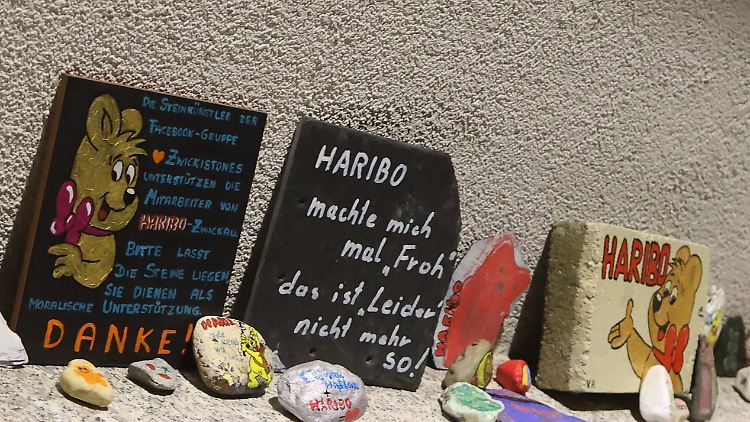 DIE STEINKÜNSTLER DER
FACEBOOK-GRUPPE
ZWICKISTONES
UNTERSTÜTZEN DIE
MITARBEITER VON
HARIBO-ZWICKAU.
BITTE LASST
DIE STEINE LIEGEN
SIE DIENEN ALS
MORALISCHE UNTERSTÜTZUNG.
DANKE!
HARIBO
machte mich
mal „Froh"
das ist „Leider"
nicht mehr
so!
HARIBO
HARIBO
HARIBO